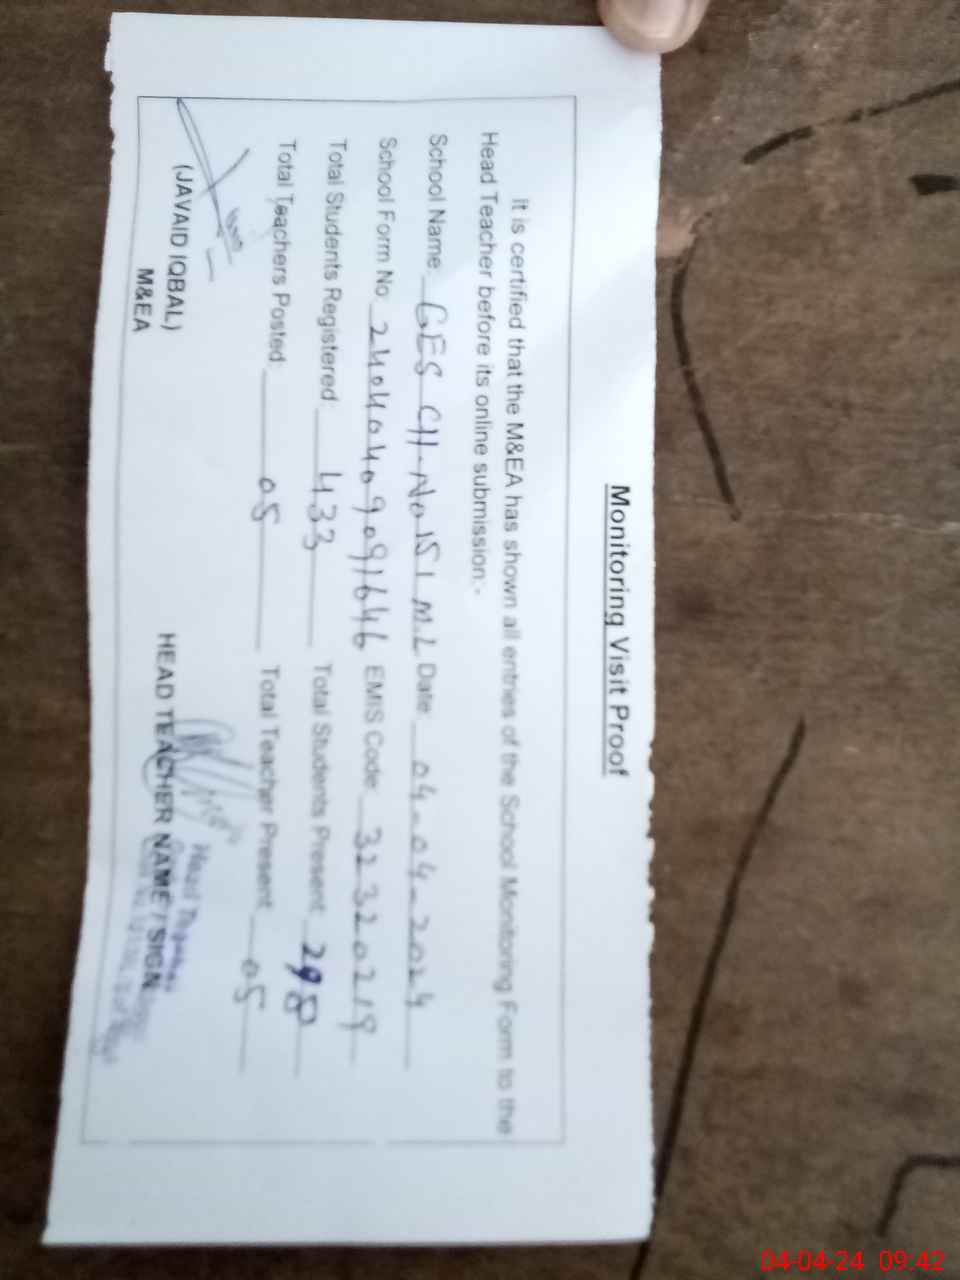 Monitoring Visit Proof
It is certified that the M&EA has shown all entries of the School Monitoring Form to the
Head Teacher before its online submission:-
School Name: GES CH-No 151 M.L Date: 04-04-2024
School Form No: 24040409091646 EMIS Code: 32320219
Total Students Registered: 433 Total Students Present: 298
Total Teachers Posted: 05 Total Teacher Present: 05
(JAVAID IQBAL)
M&EA
HEAD TEACHER NAME / SIGN
Head Teacher
04-04-24 09:42